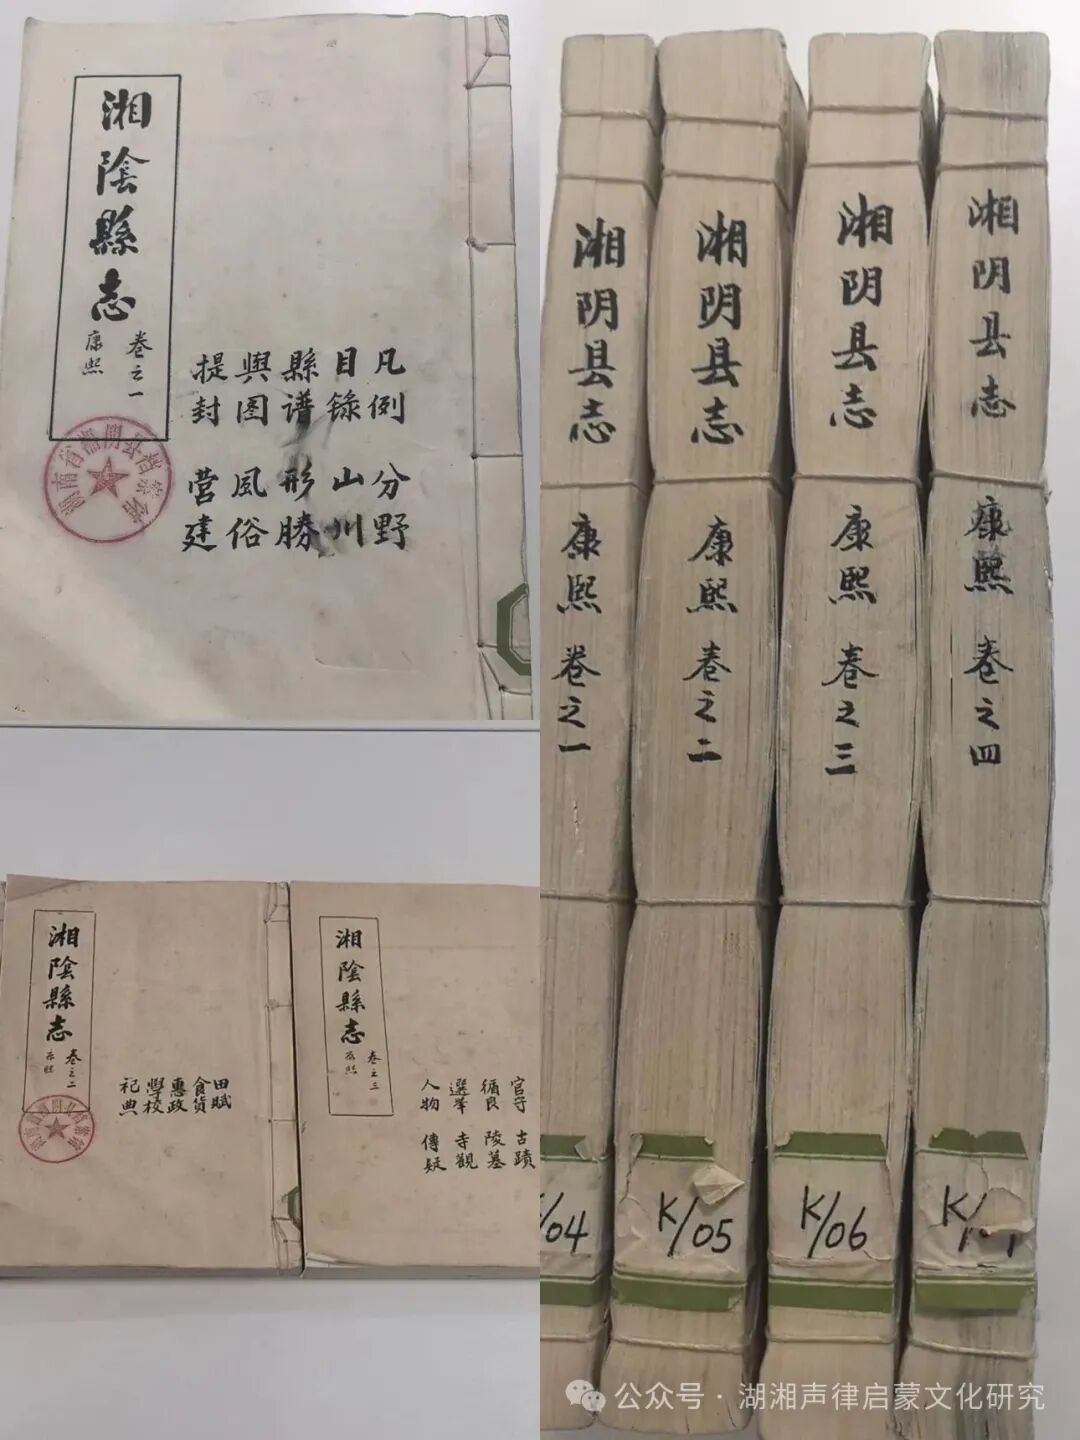 湘陰縣志
卷之一
康熙
凡例
目錄
縣谱
輿图
提封
分野
山川
形勝
風俗
营建
湖南省湘阴县档案馆
湘阴县志
康熙
卷之一
湘阴县志
康熙
卷之二
湘阴县志
康熙
卷之三
湘阴县志
康熙
卷之四
湘陰縣志
卷之二
康熙
田賦
食貨
惠政
學校
祀典
湘陰縣志
卷之三
康熙
官守
循良
選舉
人物
古蹟
陵墓
寺觀
傳疑
/04
K/05
K/06
K/
公众号·湖湘声律启蒙文化研究